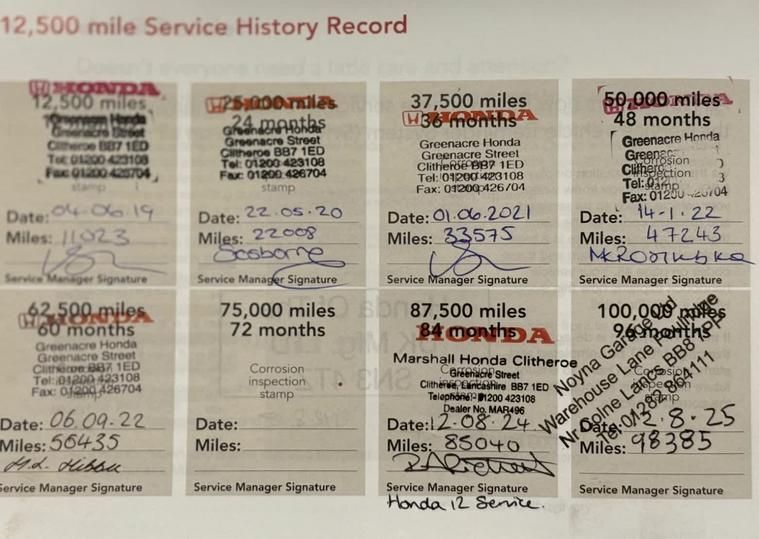 12,500 mile Service History Record
HONDA
12,500 miles
Greenacre Honda
Greenacre Street
Clitheroe BB7 1ED
Tel: 01200 423108
Fax: 01200 426704
stamp
Date: 04.06.19
Miles: 11023
Service Manager Signature
HONDA
25,000 miles
24 months
Greenacre Honda
Greenacre Street
Clitheroe BB7 1ED
Tel: 01200 423108
Fax: 01200 426704
stamp
Date: 22.05.20
Miles: 22008
Sosborne
Service Manager Signature
37,500 miles
HONDA
36 months
Greenacre Honda
Greenacre Street
Clitheroe BB7 1ED
Tel: 01200 423108
Fax: 01200 426704
Date: 01.06.2021
Miles: 33575
Service Manager Signature
HONDA
50,000 miles
48 months
Greenacre Honda
Corrosion
inspection
stamp
Fax: 01200 426704
Date: 14-1.22
Miles: 47243
Service Manager Signature
62,500 miles
HONDA
60 months
Greenacre Honda
Greenacre Street
Clitheroe BB7 1ED
Tel: 01200 423108
Fax: 01200 426704
Date: 06.09.22
Miles: 56435
Service Manager Signature
75,000 miles
72 months
Corrosion
inspection
stamp
Date:
Miles:
Service Manager Signature
87,500 miles
HONDA
84 months
Marshall Honda Clitheroe
Corrosion
Greenacre Street
Clitheroe, Lancashire BB7 1ED
Telephone: 01200 423108
Dealer No. MAR496
Date: 12.08.24
Miles: 85040
Service Manager Signature
Honda 12 Service.
100,000 miles
96 months
Noyna Garage Ltd
Warehouse Lane Foulridge
Nr Colne Lancs BB8 7PP
Tel: 01282 864111
Date: 12.8.25
Miles: 98385
Service Manager Signature